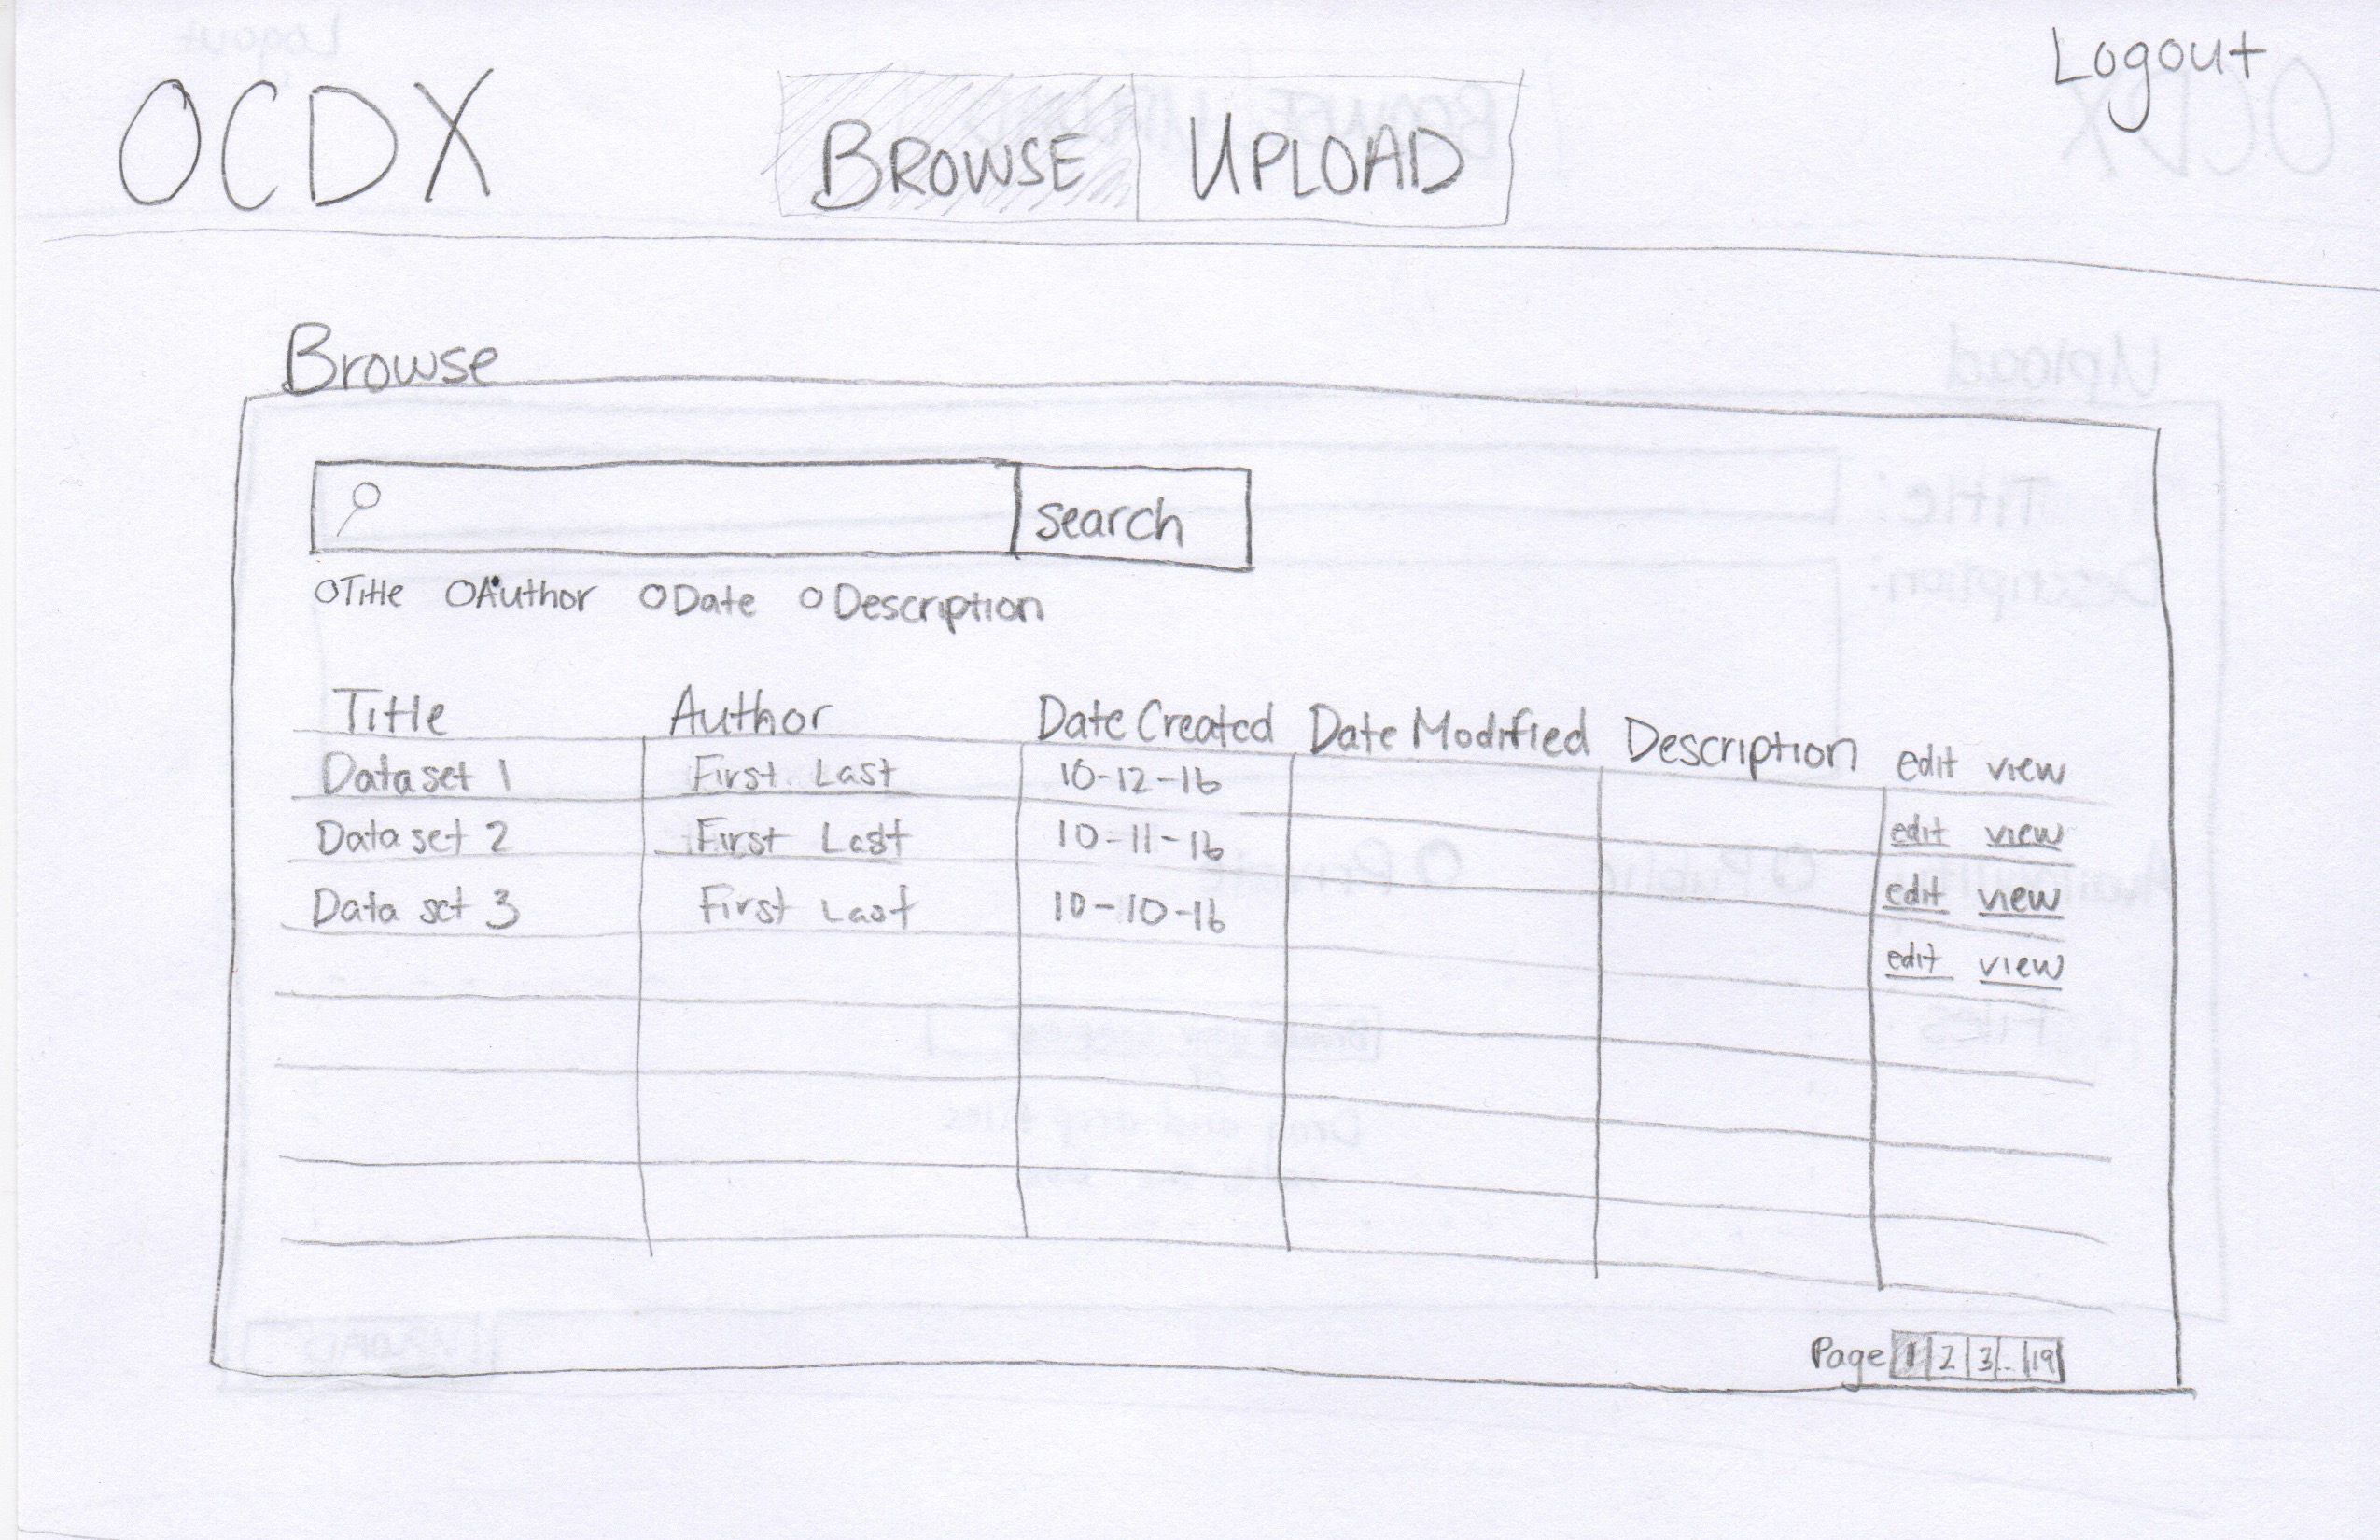 OCDX BROWSE UPLOAD Logout
Browse
search
Title Author Date Description
Title Author Date Created Date Modified Description edit view
Data set 1 First Last 10-12-16 edit view
Data set 2 First Last 10-11-16 edit view
Data set 3 First Last 10-10-16 edit view
Page 1 2 3 .. 19